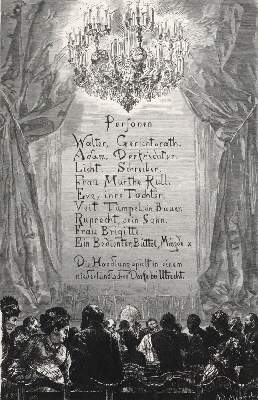 Personen
Walter, Gerichtsrath.
Adam, Dorfrichter.
Licht, Schreiber.
Frau Marthe Rull.
Eve, ihre Tochter.
Veit Tümpel, ein Bauer.
Ruprecht, sein Sohn.
Frau Brigitte
Ein Bedienter, Büttel, Mägde x
Die Handlung spielt in einem
niederländischen Dorfe bei Utrecht.